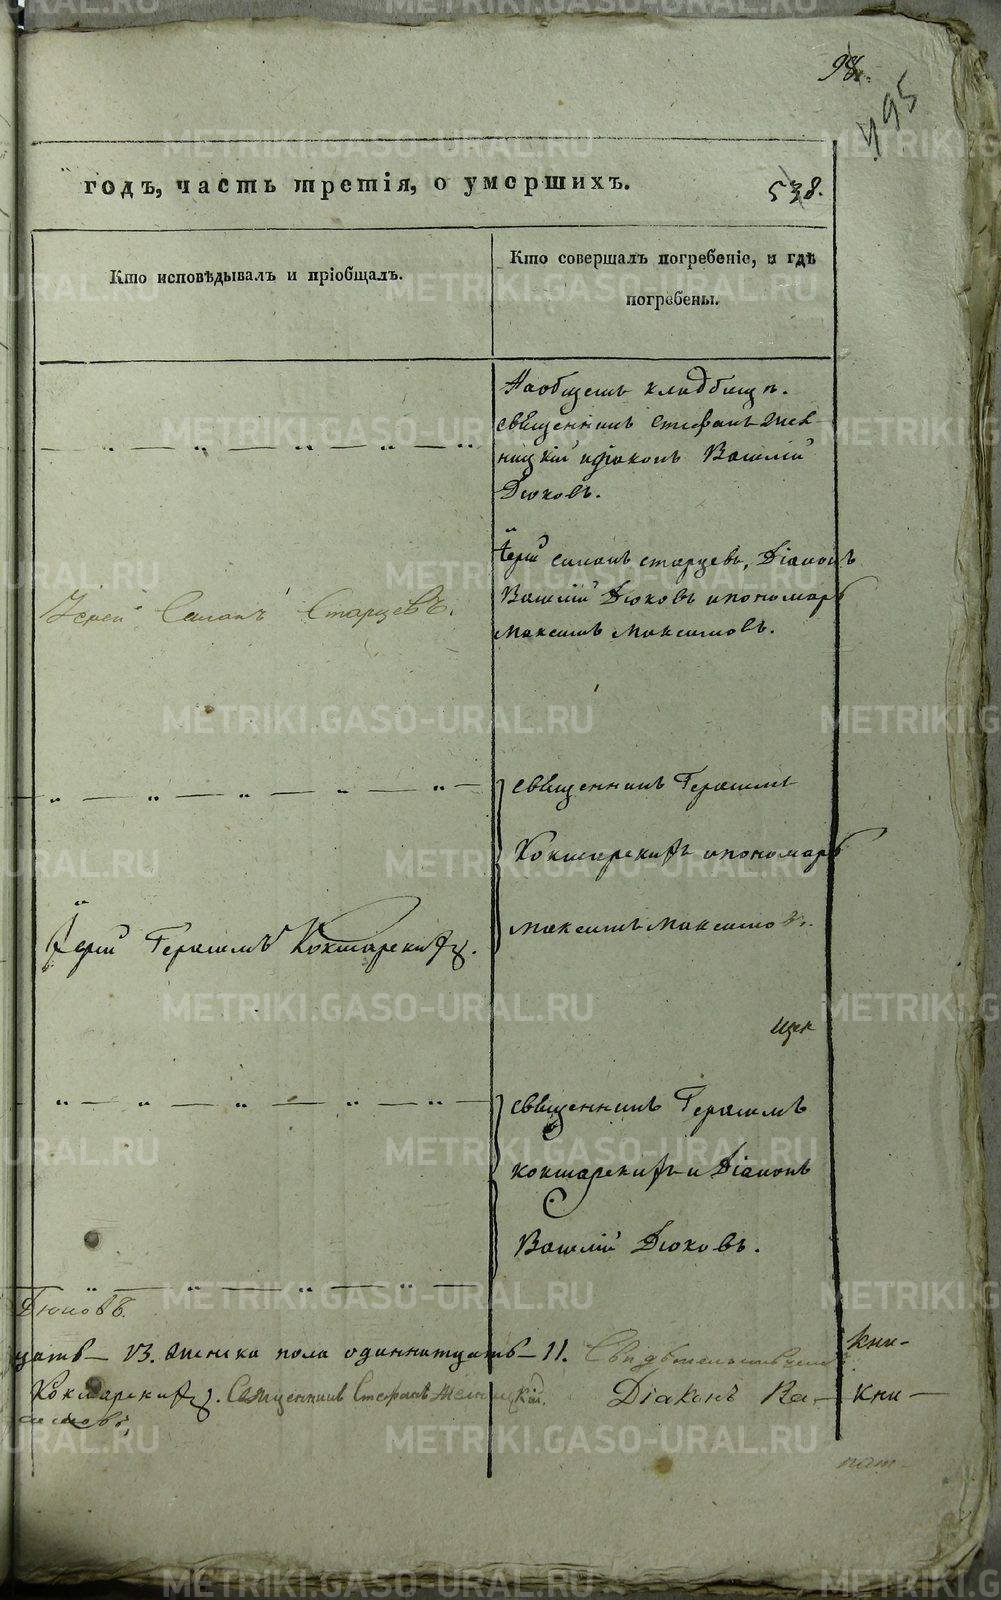 98.
495
годъ, часть третія, о умершихъ.
538.
Кто исповѣдывалъ и пріобщалъ.
Кто совершалъ погребеніе, и гдѣ
погребены.
На общемъ кладбищѣ.
священникъ Стефанъ
и діаконъ Василій
Дюковъ.
Іерей Силанъ Старцевъ, Діаконъ
Василій Дюковъ и пономарь
Максимъ Максимовъ.
Іерей Силанъ Старцевъ.
священникъ Герасимъ
Кокшарскихъ и пономарь
Максимъ Максимовъ.
Іерей Герасимъ Кокшарскихъ.
священникъ Герасимъ
Кокшарскихъ и Діаконъ
Василій Дюковъ.
Дюковъ.
цать — 13. женска пола одиннатцать — 11.
кни-
Кокшарскихъ. Священникъ Стефанъ
Діаконъ Ва-
кни-
METRIKI.GASO-URAL.RU